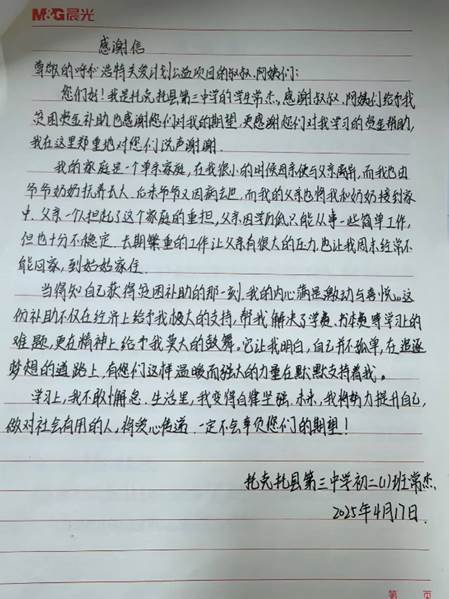 M&G晨光
感谢信
尊敬的呼和浩特关爱计划公益项目的叔叔、阿姨们：
您们好！我是托克托县第三中学的学生常杰。感谢叔叔、阿姨们给予我
贫困资金补助，也感谢您们对我的期望，更感谢您们对我学习的资金帮助，
我在这里郑重地对您们说声谢谢。
我的家庭是一个单亲家庭，在我很小的时候母亲便与父亲离异，而我也由
爷爷奶奶抚养长大，后来爷爷又因病去世，而我的父亲也将我和奶奶接到家
中，父亲一人担起了这个家庭的重担，父亲因学历低只能从事一些简单工作，
但也十分不稳定，长期繁重的工作让父亲有很大的压力，也让我周末经常不
能回家，到姑姑家住。
当得知自己获得贫困补助的那一刻，我的内心满是激动与喜悦。这
份补助不仅在经济上给予我极大的支持，帮我解决了学费、书本费等学习上的
难题，更在精神上给予我莫大的鼓舞。它让我明白，自己并不孤单，在追逐
梦想的道路上，有您们这样温暖而强大的力量在默默支持着我。
学习上，我不敢懈怠，生活里，我变得自律坚强，未来，我将努力提升自己，
做对社会有用的人，将爱心传递，一定不会辜负您们的期望！
托克托县第三中学初二(1)班常杰
2025年4月17日
第 页